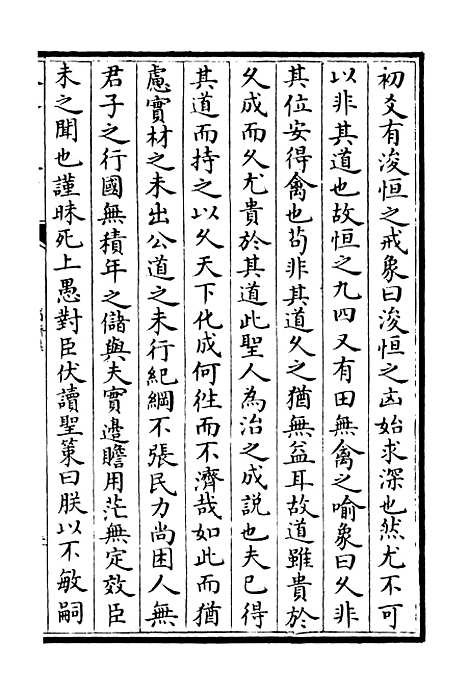 初爻有浚恒之戒象曰浚恒之凶始求深也然尤不可
以非其道也故恒之九四又有田無禽之喻象曰久非
其位安得禽也茍非其道久之猶無益耳故道雖貴於
久成而久尤貴於其道此聖人為治之成説也夫已得
其道而持之以久天下化成何徃而不濟哉如此而猶
慮實材之未出公道之未行紀綱不張民力尚困人無
君子之行國無積年之儲與夫實邉贍用茫無定效臣
未之聞也謹昧死上愚對臣伏讀聖策曰朕以不敏嗣